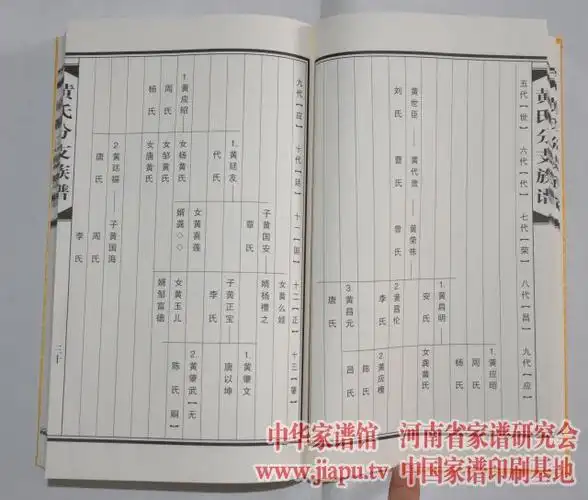 黄氏分支族谱
五代【世】
六代【代】
七代【荣】
八代【昌】
九代【应】
黄世臣
刘氏
黄代贵
曹氏
黄荣祎
曾氏
1黄昌明
安氏
2黄昌伦
李氏
3黄昌元
唐氏
1.黄应昭
周氏
杨氏
女龚黄氏
2.黄应槐
陈氏
吕氏
黄氏分支族谱
九代【应】
十代【廷】
十一【国】
十二【正】
十三【肇】
1黄应昭
周氏
杨氏
1.黄廷友
代氏
女杨黄氏
女邹黄氏
女唐黄氏
2黄廷福
唐氏
子黄国安
章氏
女黄喜莲
婿龚◇◇
子黄国海
周氏
李氏
女黄么娃
婿杨檀之
子黄正宝
李氏
女黄玉儿
婿邹富德
1.黄肇文
唐以坤
2.黄肇武【无
陈氏嗣】
三十
中华家谱馆 河南省家谱研究会
www.jiapu.tv 中国家谱印刷基地